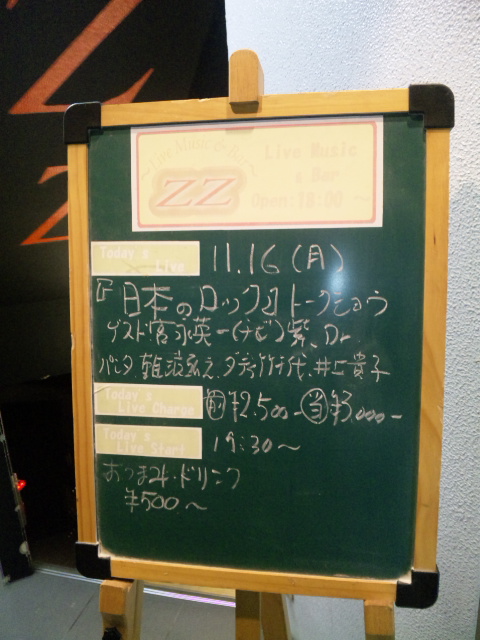 ZZ
~Live Music & Bar~
ZZ
Live Music
& Bar
Open:18:00 ~
Today's
Live
11.16(月)
『日本のロック』トークショウ
ゲスト:宮永英一(チビ)紫、Dr.
パンタ、難波弘之、井上貴子
Today's
Live Charge
前¥2.500- 当¥3000-
Today's
Live Start
19:30~
おつまみ・ドリンク
¥500~